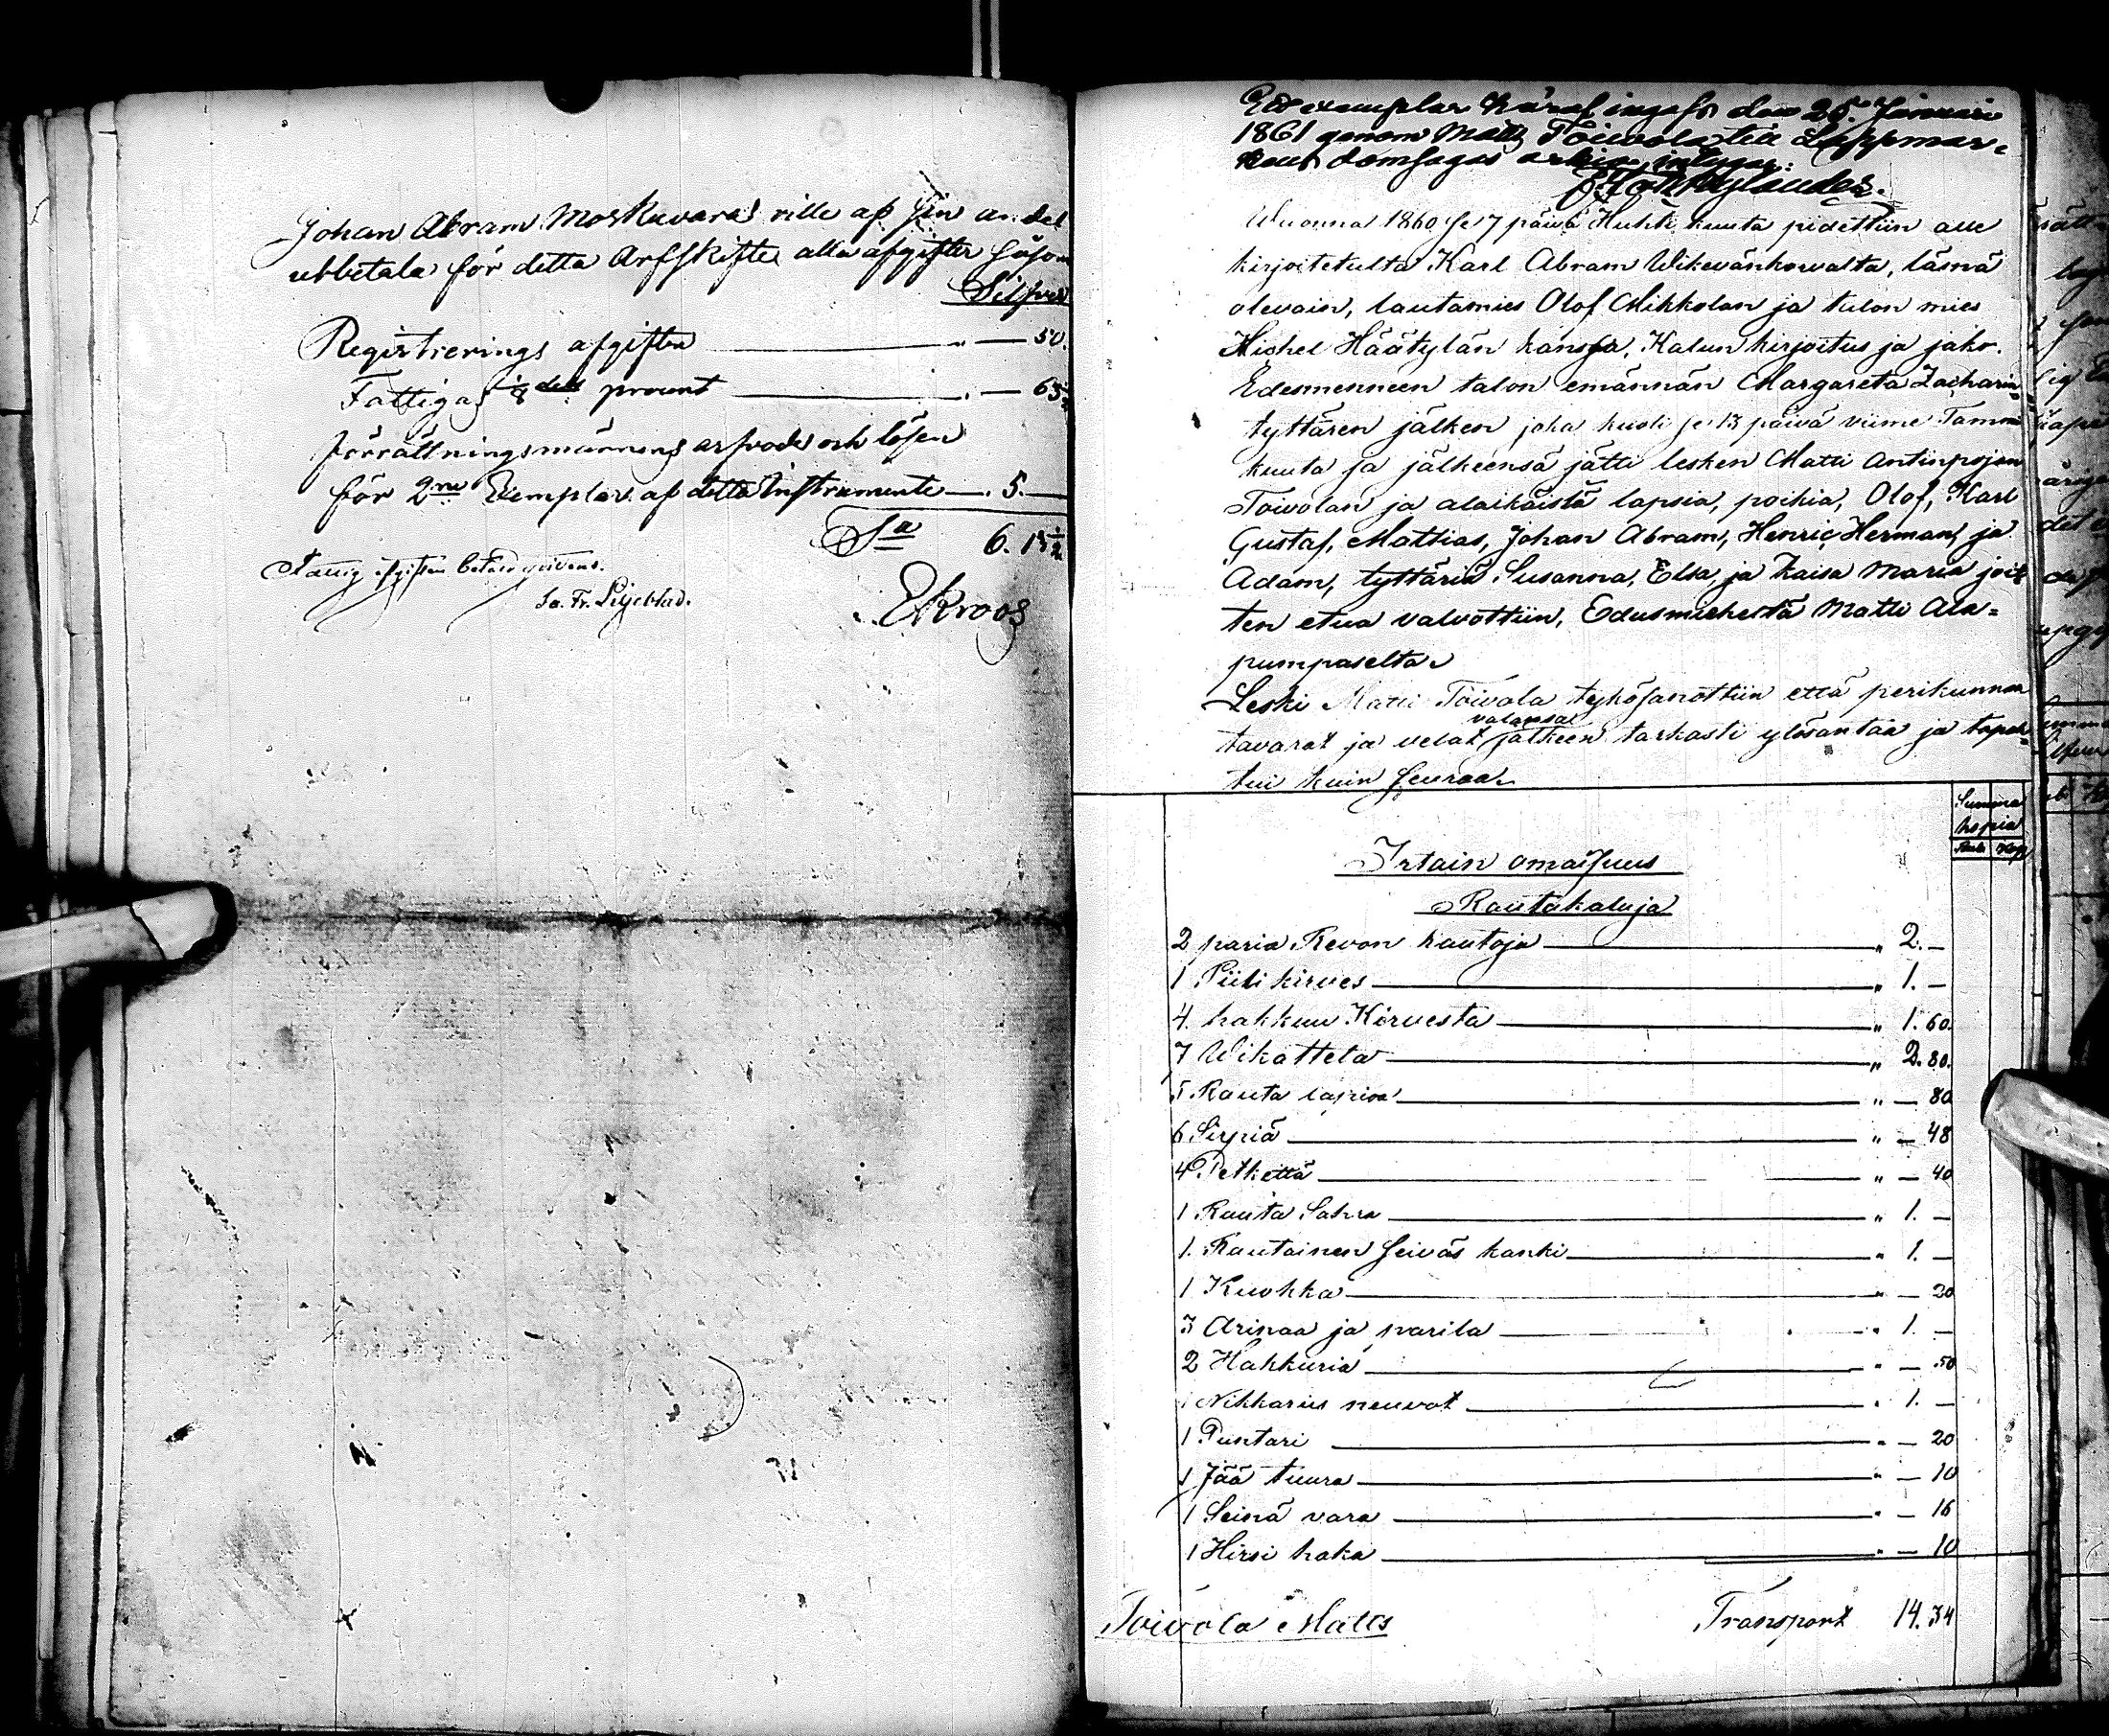 Johan Abram Moskuvaras ville af sin andel
utbetala för detta Arfskifte alla afgifter såsom
Silfver
Registrerings afgiften " — 50.
Fattigas 1/8 dels procent " — 65 1/2
förrättningsmännens arfvode och lösen
för 2ne Exemplar af detta Instrumente — 5. —
Sa 6. 15 1/2
afgiften betald
Jo. Fr. Liljeblad.
E Kroos
Ett exemplar häraf ingafs den 25 Januari
1861 genom Matts Toivola till Lappmar-
kens domsagas arkiv, intygar:
Wuonna 1860 se 7 päivä Huhti kuuta pidettiin alle
kirjoitetulta Karl Abram Wikevänkowalta, läsnä
olevain, lautamies Olof Mikkolan ja talon mies
Michel Häätylän kanssa, Kalun kirjoitus ja jako.
Edesmenneen talon emännän Margareta Zacharin
tyttären jälken joka kuoli se 13 päivä viime Tammi
kuuta ja jälkeensä jätti lesken Matti Antinpojan
Toivolan ja alaikäistä lapsia, poikia, Olof, Karl
Gustaf, Mattias, Johan Abram, Henric Herman, ja
Adam, tyttäriä Susanna, Elsa, ja Kaisa Maria joit
ten etua valvottiin, Edusmieheltä Matti Ala=
pumpaselta
Leski Matti Toivola tykösanottiin että perikunnan
valansa
tavarat ja velat jälkeen tarkasti ylösantaa ja tapah
tui kuin seuraa.
Summa
hopia
Rubl Kop
Irtain omaisuus
Rautakaluja
2 paria Revon rautoja " 2. —
1 Piili kirves " 1. —
4. hakkuu Kirvesta " 1. 60.
7 Wikatteta " 2. 80.
5 Rauta lapioa " — 80
6 Sirpiä " — 48
4 Petkettä " — 40
1 Rauta Sahra " 1. —
1. Rautainen seiväs kanki " 1. —
1 Kuokka " — 20
3 Arinaa ja parila " 1. —
2 Hakkuria " — 50
1 Nikkarius neuvot " 1. —
1 Puntari " — 20
1 Jää tuura " — 10
1 Seinä vara " — 16
1 Hirsi haka " — 10
Toivola Matts Transport 14. 34